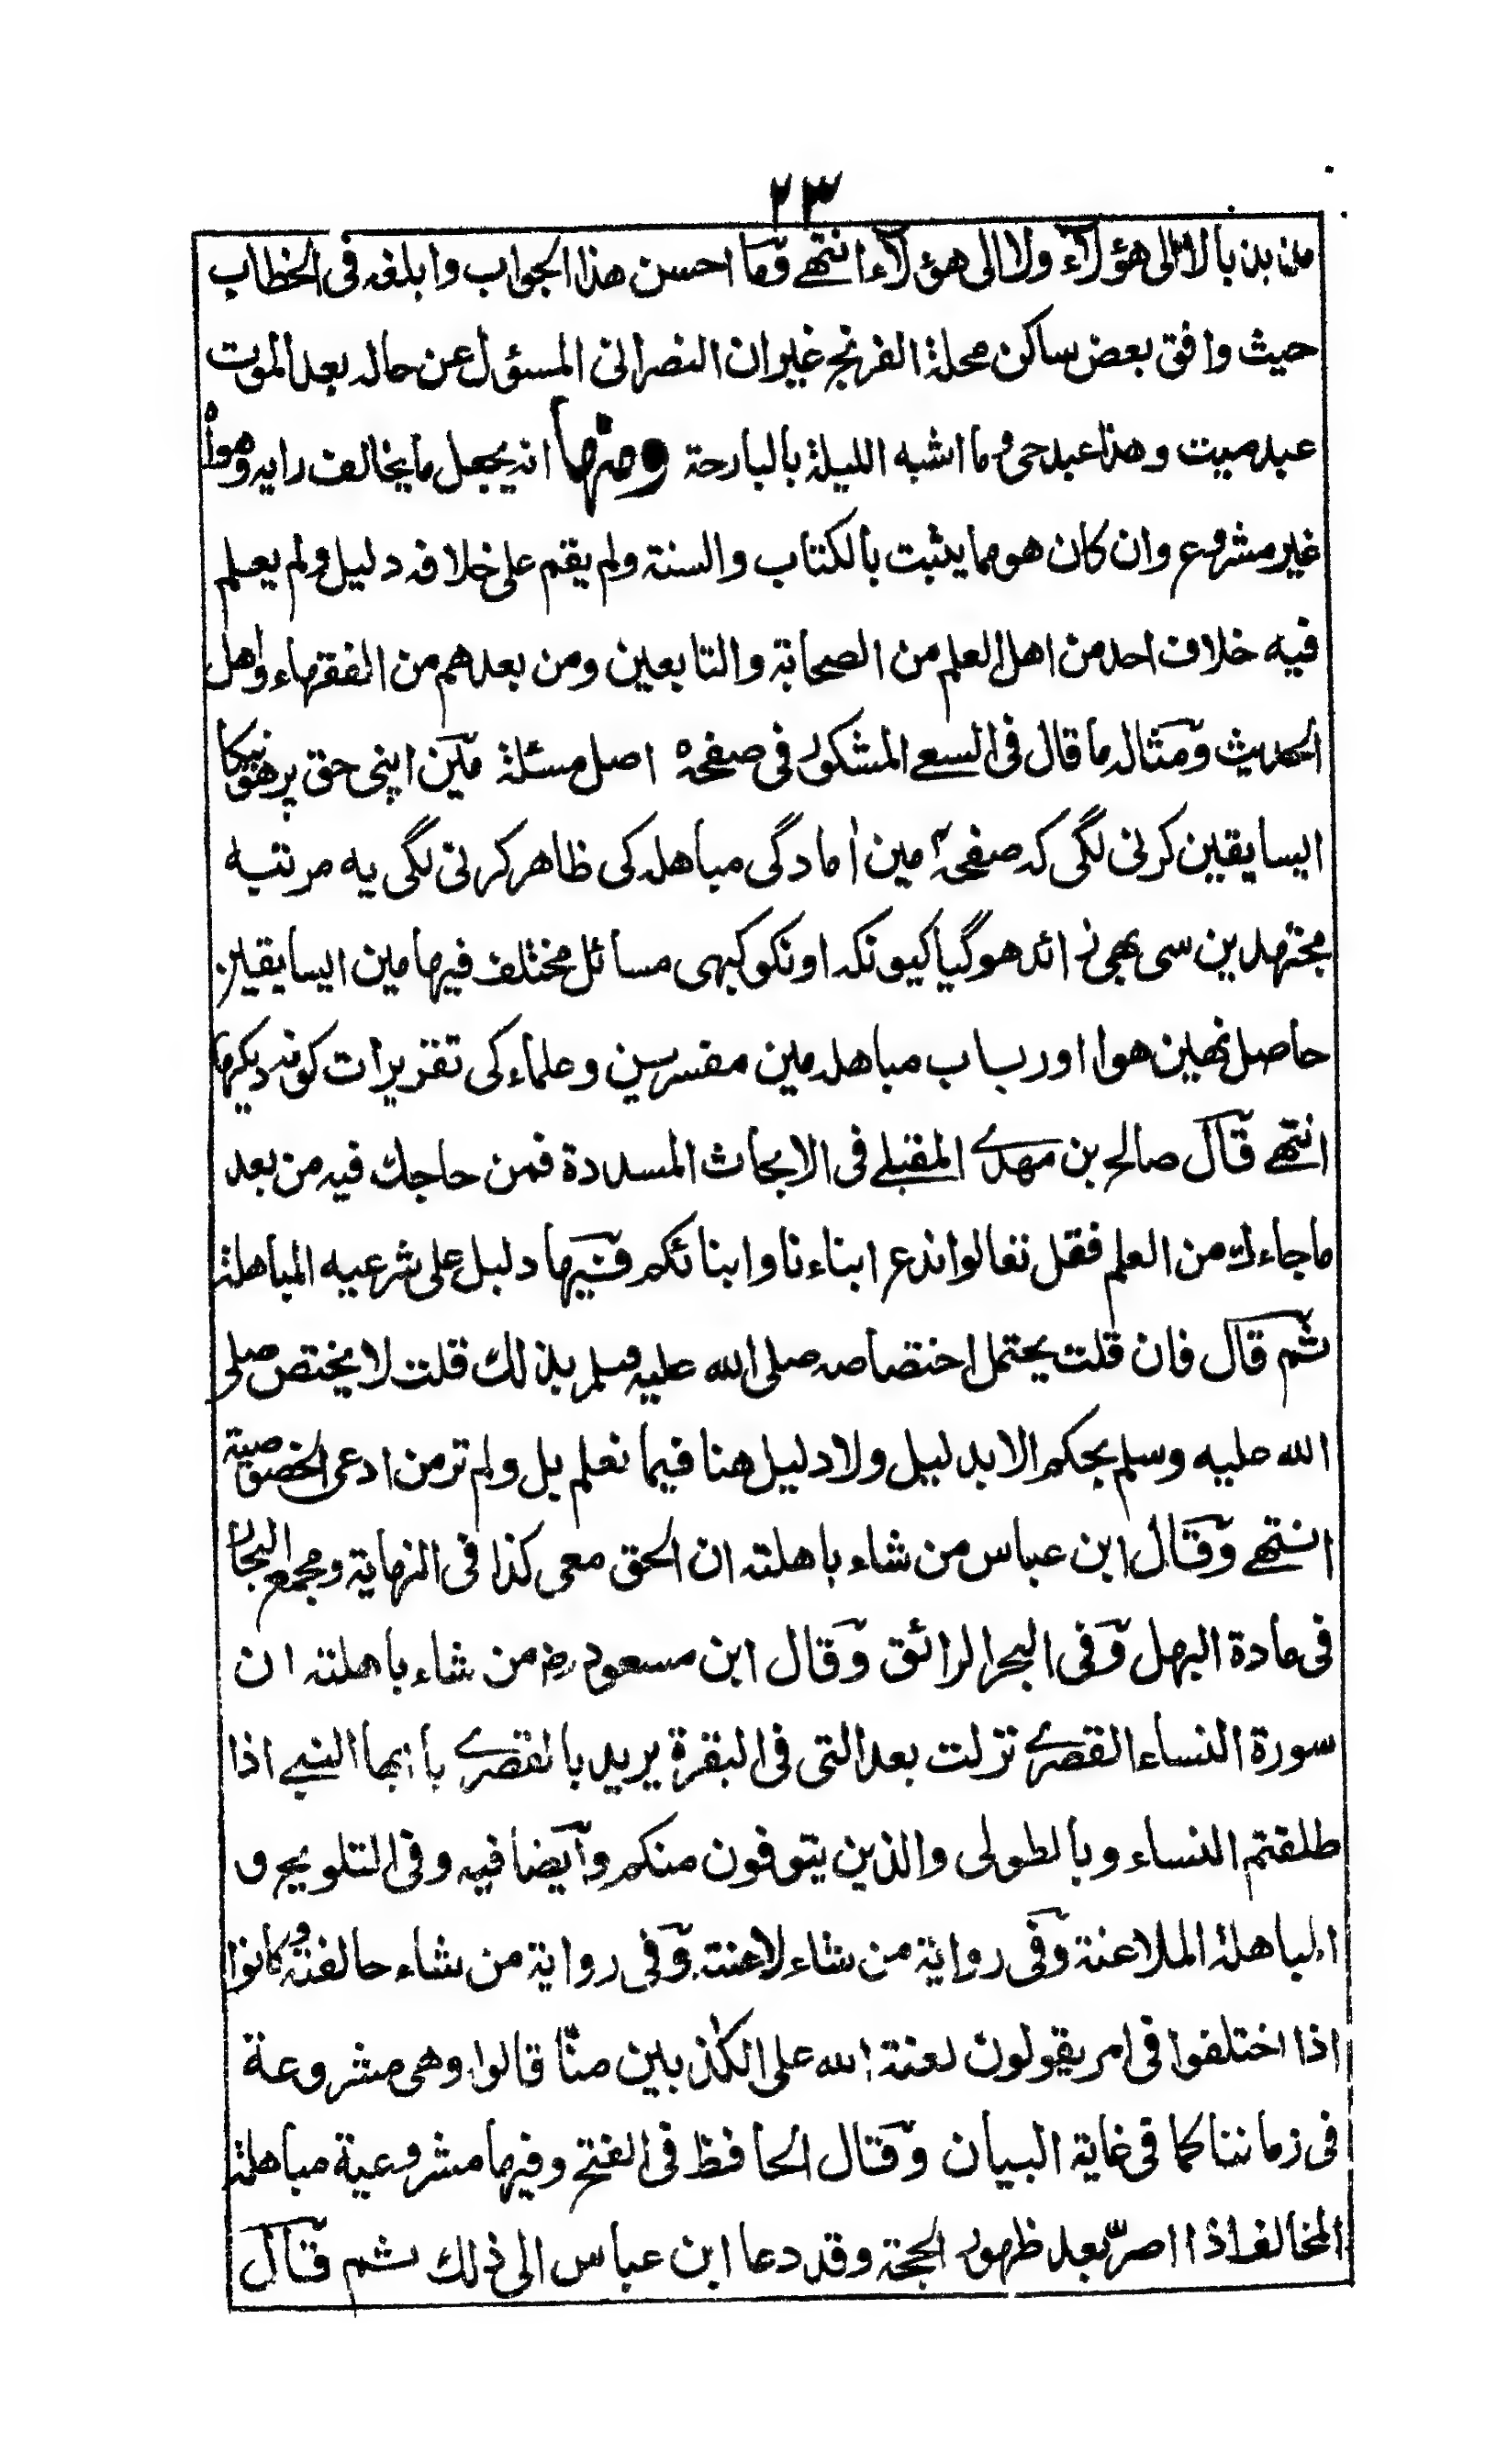 ٢٣
مذبذبا لا الى هؤلاء ولا الى هؤلاء انتهى وما احسن هذا الجواب وابلغه فى الخطاب
حيث وافق بعض ساكن محلة الفرنج غيران النصرانى المسؤل عن حاله بعد الموت
عبد ميت وهذا عبد حى وما اشبه الليلة بالبارحة ومنها انه يجعل ما يخالف رايه وهواه
غير مشروع وان كان هو مما يثبت بالكتاب والسنة ولم يقم على خلافه دليل ولم يعلم
فيه خلاف احد من اهل العلم من الصحابة والتابعين ومن بعدهم من الفقهاء واهل
الحديث ومثاله ما قال فى السعى المشكور فى صفحه اصل مسئلة مين اپنى حق پر هونيكا
ايسا يقين كرنى لگى كه صفحه مين آمادگى مباهله كى ظاهر كرنى لگى يه مرتبه
مجتهدين سى بهى زائد هوگيا كيونكه اونكو كبهى مسائل مختلف فيها مين ايسا يقين
حاصل نهين هوا اور باب مباهله مين مفسرين وعلماء كى تقريرات كو نه ديكها
انتهى قال صالح بن مهدى المقبلى فى الابحاث المسددة فمن حاجك فيه من بعد
ما جاءك من العلم فقل تعالوا ندع ابناءنا وابنائكم فيها دليل على شرعيه المباهلة
ثم قال فان قلت يحتمل اختصاصه صلى الله عليه وسلم بذلك قلت لا يختص صلى
الله عليه وسلم بحكم الا بدليل ولا دليل هنا فيما نعلم بل ولم تر من ادعى الخصوصية
انتهى وقال ابن عباس من شاء باهلته ان الحق معى كذا فى النهاية ومجمع البحار
فى مادة البهل وفى البحر الرائق وقال ابن مسعود رض من شاء باهلته ان
سورة النساء القصرى نزلت بعد التى فى البقرة يريد بالقصرى يا ايها النبى اذا
طلقتم النساء وبالطولى والذين يتوفون منكم وايضا فيه وفى التلويح و
المباهلة الملاعنة وفى رواية من شاء لاعنته وفى رواية من شاء حالفته وكانوا
اذا اختلفوا فى امر يقولون لعنة الله على الكٰذبين منّا قالوا وهى مشروعة
فى زماننا كما فى غاية البيان وقال الحافظ فى الفتح وفيها مشروعية مباهلة
المخالف اذا اصرّ بعد ظهور الحجة وقد دعا ابن عباس الى ذلك ثم قال